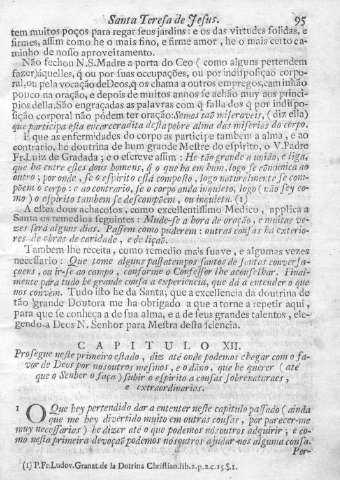 Santa Teresa de Jesus. 95
tem muitos poços para regar seus jardins: e os das virtudes solidas, e
firmes, assim como he o mais fino, e firme amor, he o mais certo ca-
minho de nosso aproveitamento.
Não fechou N.S.Madre a porta do Ceo (como alguns pertendem
fazer) àquelles, q̃ ou por suas occupações, ou por indisposiçaõ corpo-
ral, ou pela vocação de Deos, q̃ os chama a outros empregos, caminhaõ
pouco na oração, e depois de muitos annos se achão muy aos princi-
pios della. São engraçadas as palavras com q̃ falla dos q̃ por indispo-
sição corporal não pódem ter oração: Somos taõ miseraveis, (diz ella)
que participa esta encarcerada desta pobre alma das miserias do corpo.
E que as enfermidades do corpo as participe tambem a alma, e ao
contrario, he doutrina de hum grande Mestre do espirito, o V. Padre
Fr. Luiz de Granada; e o escreve assim: He tão grande a união, e liga,
que ha entre estes dous homens, q̃ o que ha em hum, logo se cõmunica ao
outro; por onde, se o espirito està composto, logo naturalmente se com-
põem o corpo: e ao contrario, se o corpo anda inquieto, logo (não sey co-
mo) o espirito tambem se descompõem, ou inquieta. (1)
A estes dous achacosos, como excellentissimo Medico, applica a
Santa os remedios seguintes: Mude-se a hora de oração, e muitas ve-
zes serà alguns dias. Passem como puderem: outras cousas ha exterio-
res de obras de caridade, e de liçaõ.
Tambem lhe receita, como remedio mais suave, e algumas vezes
necessario: Que tome alguns passatempos santos de santas conversa-
çoens, ou ir-se ao campo, conforme o Confessor lhe aconselhar. Final-
mente para tudo he grande cousa a experiencia, que dá a entender o que
nos convém. Tudo isto he da Santa; que a excellencia da doutrina de
tão grande Doutora me ha obrigado a que a torne a repetir aqui,
para que se conheça a de sua alma, e a de seus grandes talentos, ele-
gendo-a Deos N. Senhor para Mestra desta sciencia.
CAPITULO XII.
Prosegue neste primeiro estado, diz até onde podemos chegar com o fa-
vor de Deos por nosoutros mesmos, e o dãno, que he querer (até
que o Senhor o faça) subir o espirito a cousas sobrenaturaes,
e extraordinarias.
1 O Que hey pertendido dar a entender neste capitulo passado (ainda
que me hey divertido muito em outras cousas, por parecer-me
muy necessarios) he dizer até o que podemos nosoutros adquirir; e co-
mo nesta primeira devoçaõ podemos nosoutros ajudar-nos alguma cousa.
Por-
(1) P.Fr.Ludov.Granat.de la Dotrina Christian.lib.2.p.2.c.15 §.1.